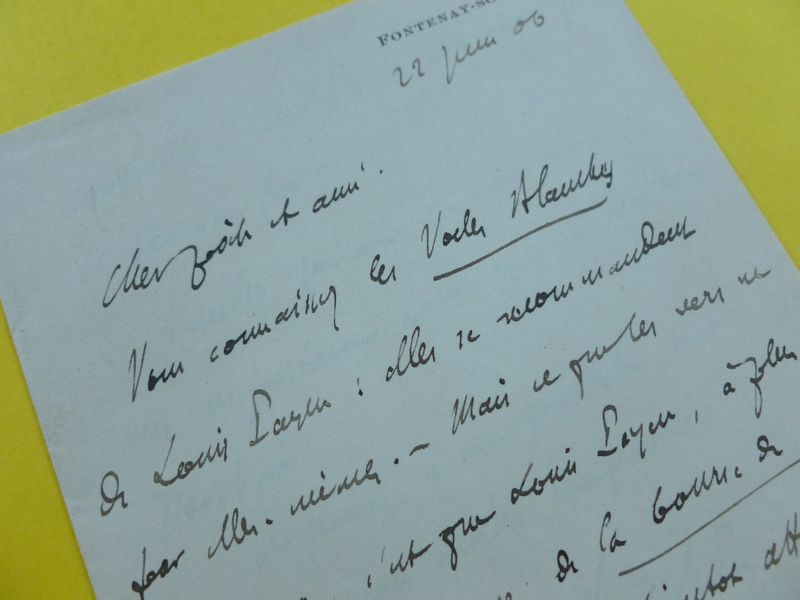 FONTENAY-SO
22 juin 06
Cher poète et ami.
Vous connaissez les Voiles Blanches
de Louis Payen : elles se recommandent
par elles-mêmes. — Mais ce que les vers ne
c'est que Louis Payen, à plus
de la bourse de